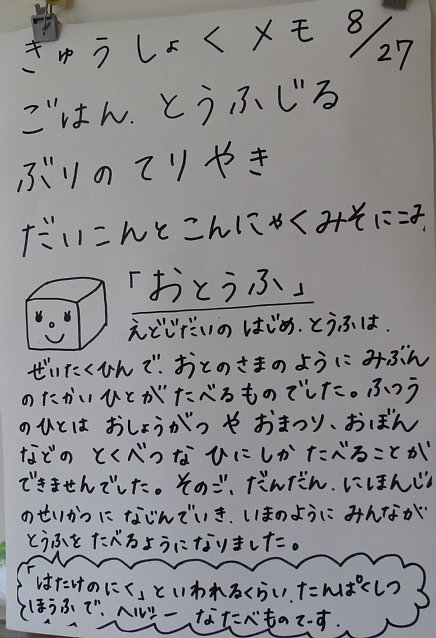 きゅうしょくメモ 8/27
ごはん. とうふじる
ぶりのてりやき
だいこんとこんにゃくみそにこみ
「おとうふ」
えどじだいの はじめ. とうふは.
ぜいたくひんで. おとのさまのように みぶん
のたかいひとが たべるものでした。ふつう
のひとは おしょうがつ や おまつり、おぼん
などの とくべつな ひにしか たべることが
できませんでした。そのご、だんだん. にほんじん
のせいかつに なじんでいき. いまのように みんなが
とうふを たべるようになりました。
「はたけのにく」といわれるくらい. たんぱくしつ
ほうふで、ヘルシーなたべものです.